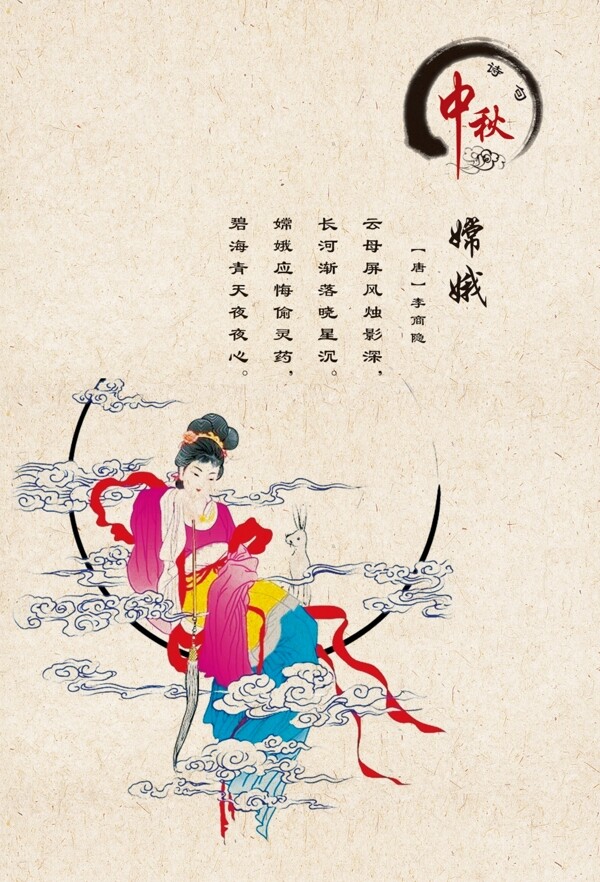 诗句
中秋
嫦娥
【唐】李商隐
云母屏风烛影深，
长河渐落晓星沉。
嫦娥应悔偷灵药，
碧海青天夜夜心。